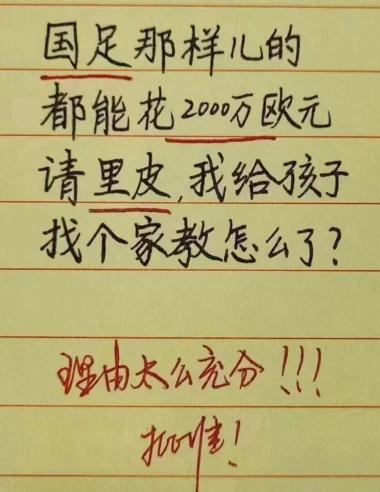 国足那样儿的
都能花2000万欧元
请里皮,我给孩子
找个家教怎么了?
理由太公充分!!!
批准!